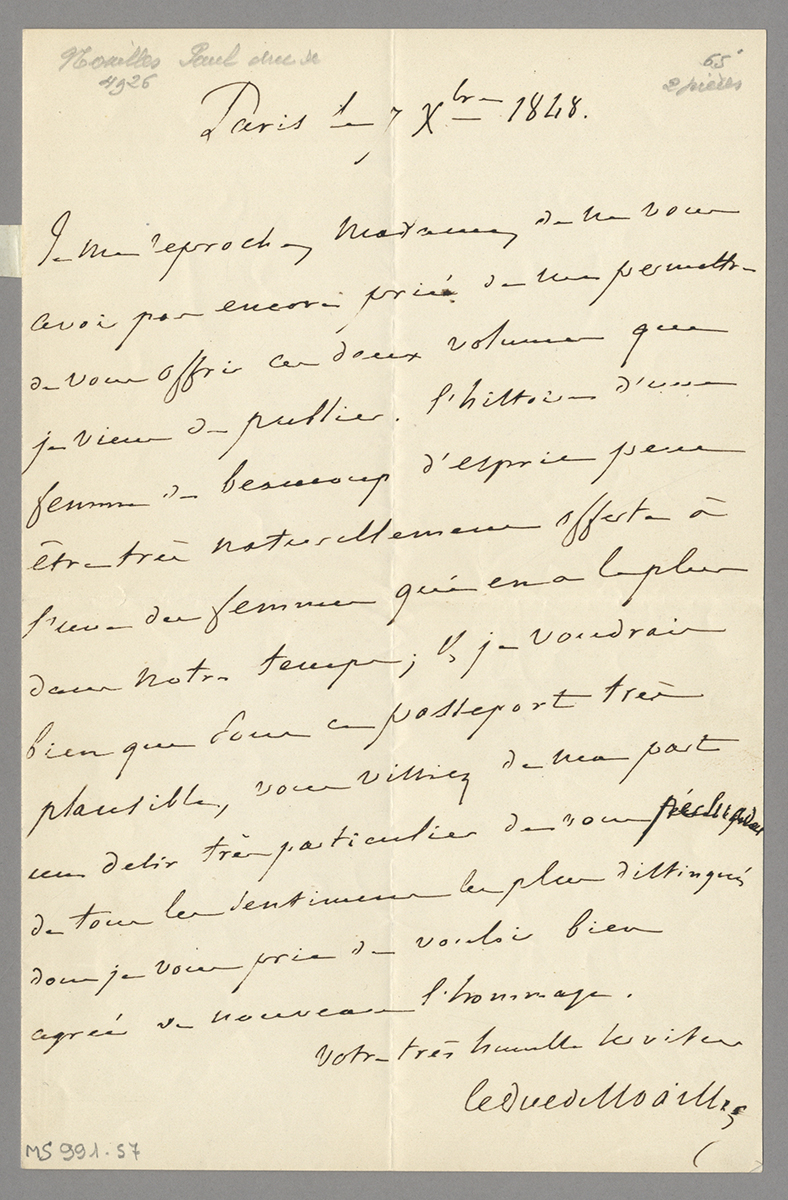 Noailles Paul duc de
4926
65
2 pièces
Paris le 7 Xbre 1848.
Je me reproche, Madame, de ne vous
avoir pas encore prié de me permettre
de vous offrir ces deux volumes que
je viens de publier. l'histoire d'une
femme de beaucoup d'esprit peut
être très naturellement offerte à
l'une des femmes qui en a le plus
dans notre temps; & je voudrais
bien que sous ce passeport très
plausible, vous vissiez de ma part
un desir très particulier de vous
de tous les sentimens les plus distingués
dont je vous prie de vouloir bien
agréer de nouveau l'hommage.
Votre très humble serviteur
le duc de Noailles
MS 991.57